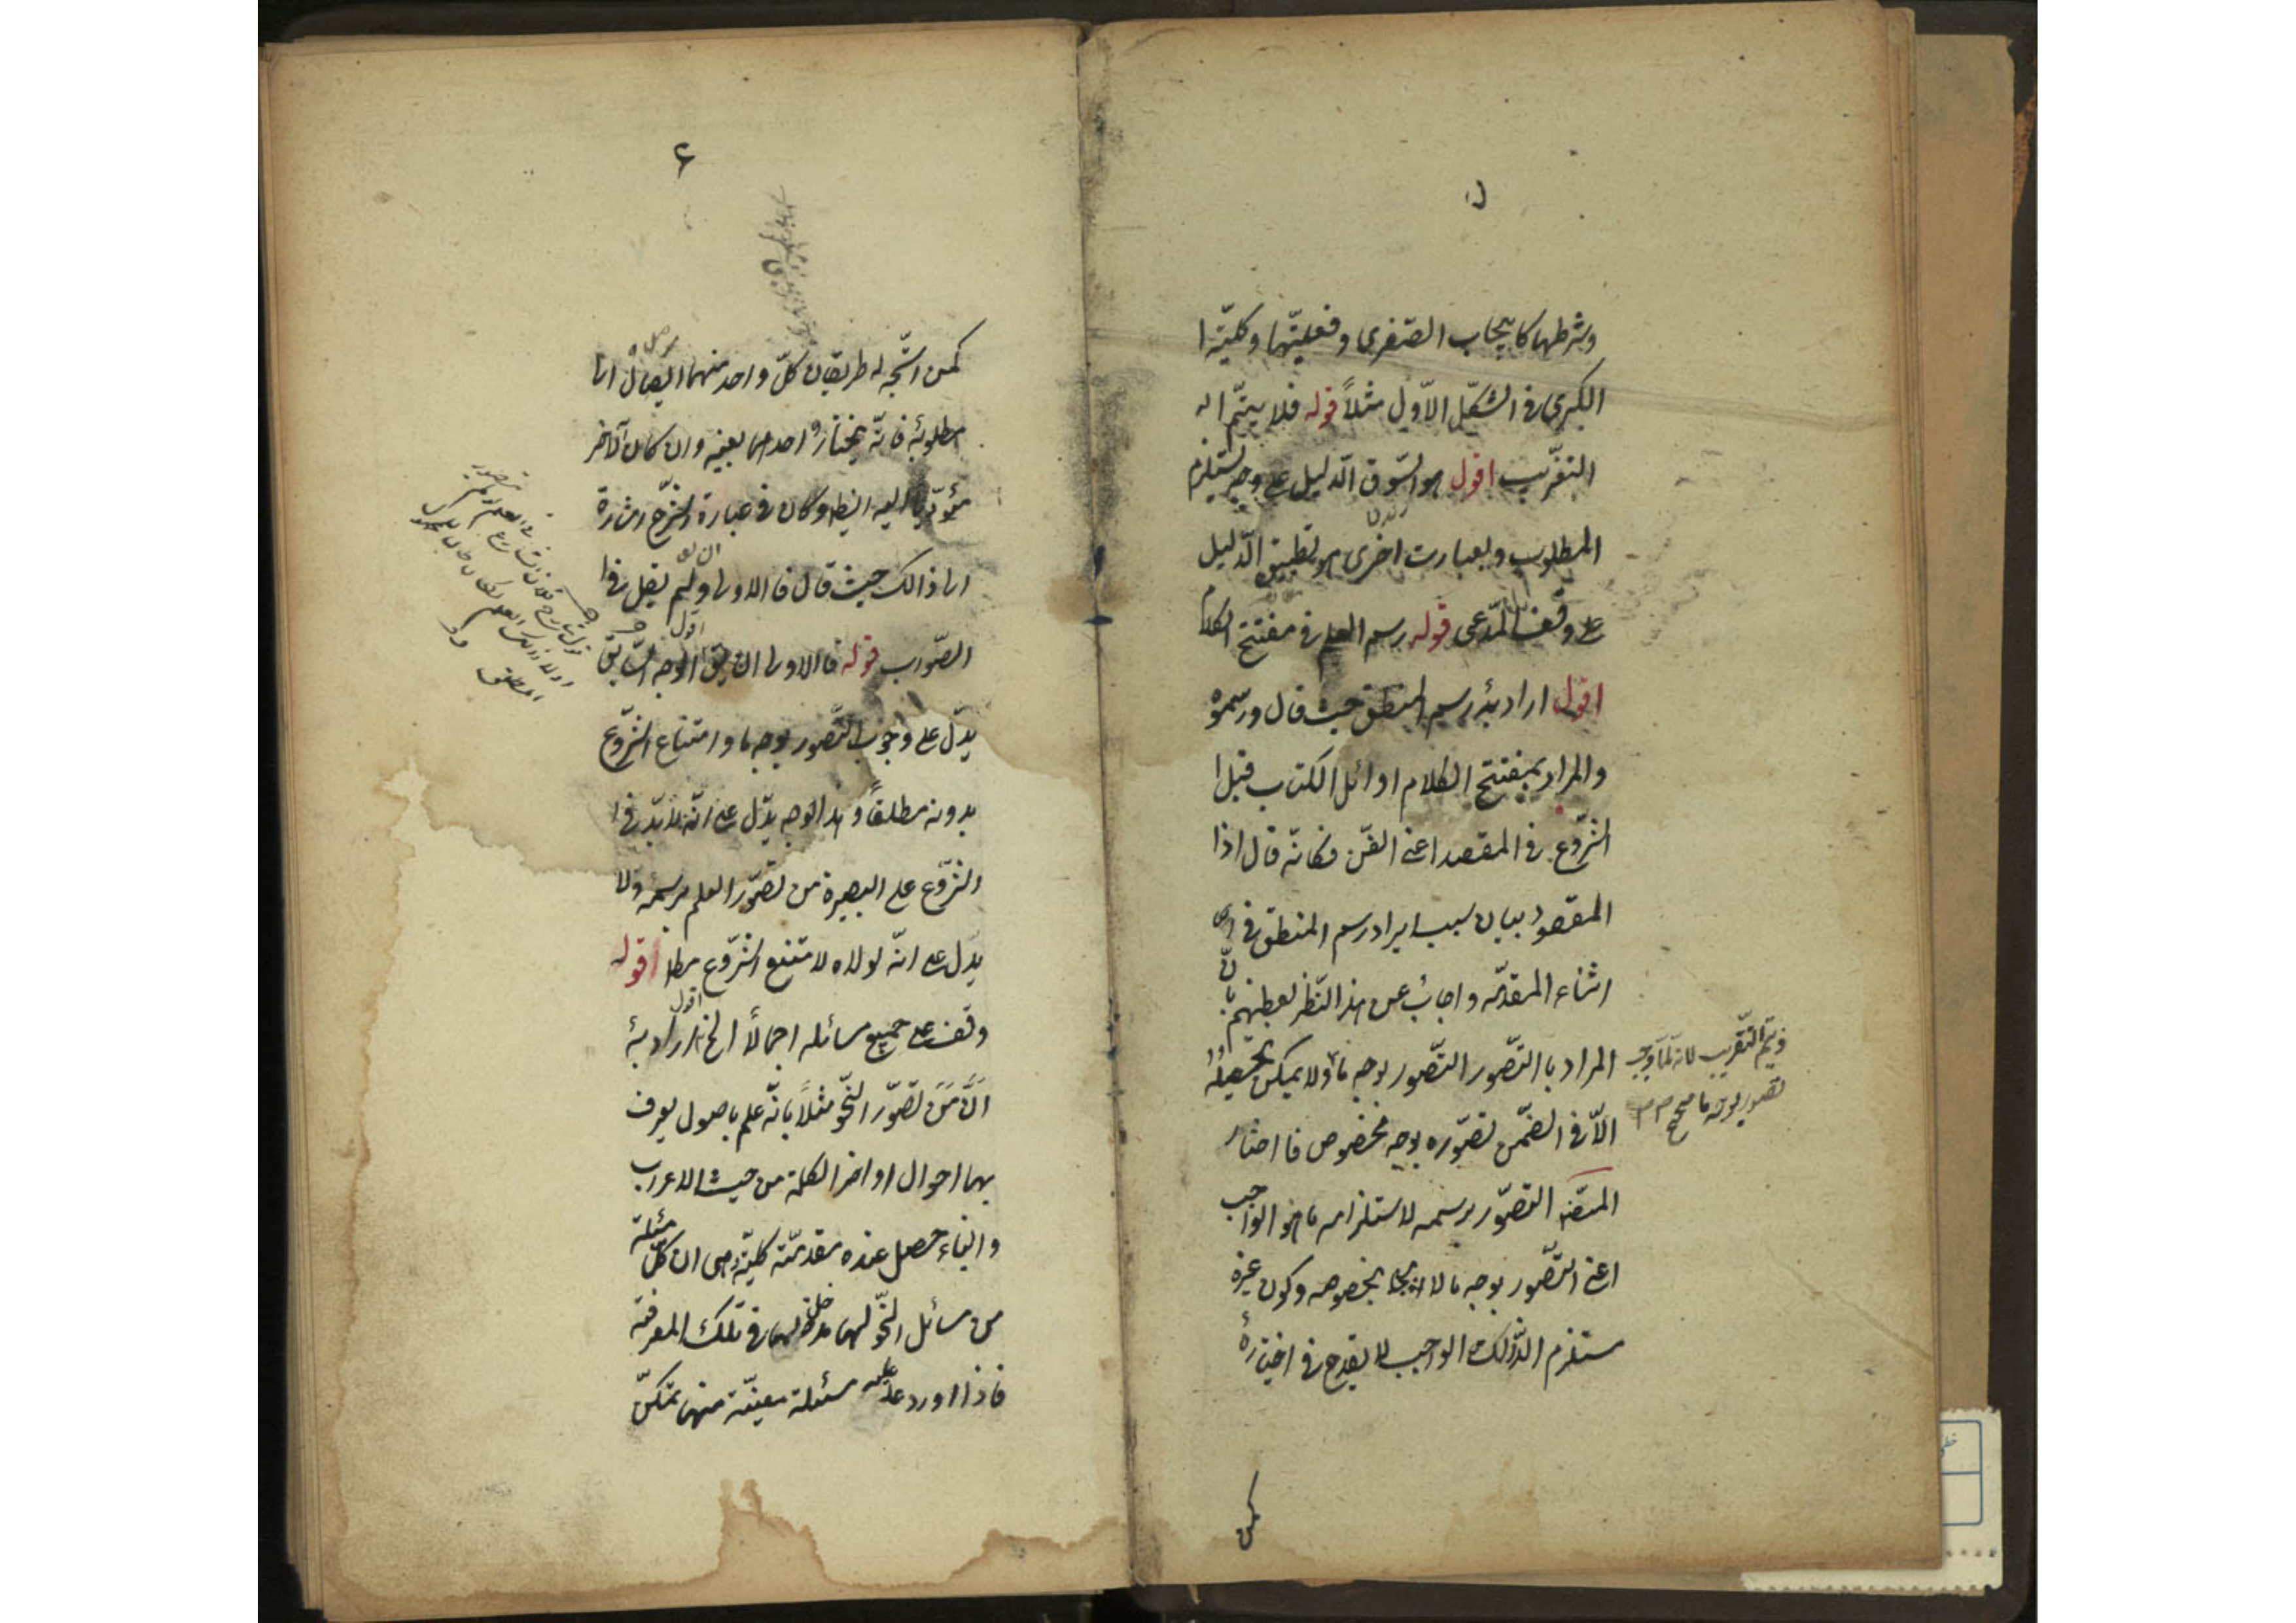 وشرطها كايجاب الصغرى وفعليّتها وكليّة ا
الكبرى فى الشكل الاوّل مثلاً قوله فلا يتمّ اه
التقريب اقول هو سوق الدليل على وجه يستلزم
المطلوب وبعبارت اخرى هو تطبيق الدّليل
على وفق المدّعى قوله رسم العلم فى مفتتح الكلام
اقول اراد به رسم المنطق حيث قال ورسموه
والمراد بمفتتح الكلام اوائل الكتاب قبل ا
الشروع فى المقصد اعنى الفنّ فكانّه قال اذا
المقصود بيان سبب ايراد رسم المنطق فى
اثناء المقدّمه واجاب عن هذا النّظر بعضهم بانّ
المراد با التّصور التّصور بوجه ما ولا يمكن تحصيله
فيتمّ التّقريب لانه لمّا وجب
تصور بوجه ما صحّ
الاّ فى الضّمن تصوّره بوجه مخصوص فا اختار
المصنف التصوّر برسمه لاستلزامه ما هو الواجب
اعنى التّصور بوجه ما لا بخصوصه وكون غيره
مستلزم الذّلك الواجب لا يقدح فى اختياره
كمن
۶
كمن اتّجه له طريقان كلّ واحد منهما ايصال الى
مطلوبه فانّه يختار احدهما بعينه وان كان الاخر
مؤدّياً اليه ايضا وكان فى عبارة الشرح اشارة
الى ذالك حيث قال فا الاولى ولم يقل فا
الصّواب قوله فا الاولى ان يق اقول الوجه السّابق
يدّل على وجوب التّصور بوجه ما وامتناع الشّروع
بدونه مطلقاً وهذا الوجه يدّل على انّه لا بدّ فى ا
الشّروع على البصيرة من تصوّر العلم برسمه ولا
يدّل على انّه لولاه لامتنع الشّروع مطلقا قوله
وقف على جميع مسائله اجمالاً الخ اقول اراد به
انّ من تصوّر النّحو مثلاً بانّه علم باصول يعرف
بها احوال اواخر الكلمة من حيث الاعراب
والبناء حصل عنده مقدّمة كليّة وهى ان كلّ مسئلة
من مسائل النّحو لها مدخل فى تلك المعرفة
فاذا اورد عليه مسئلة معيّنة منها تمكّن